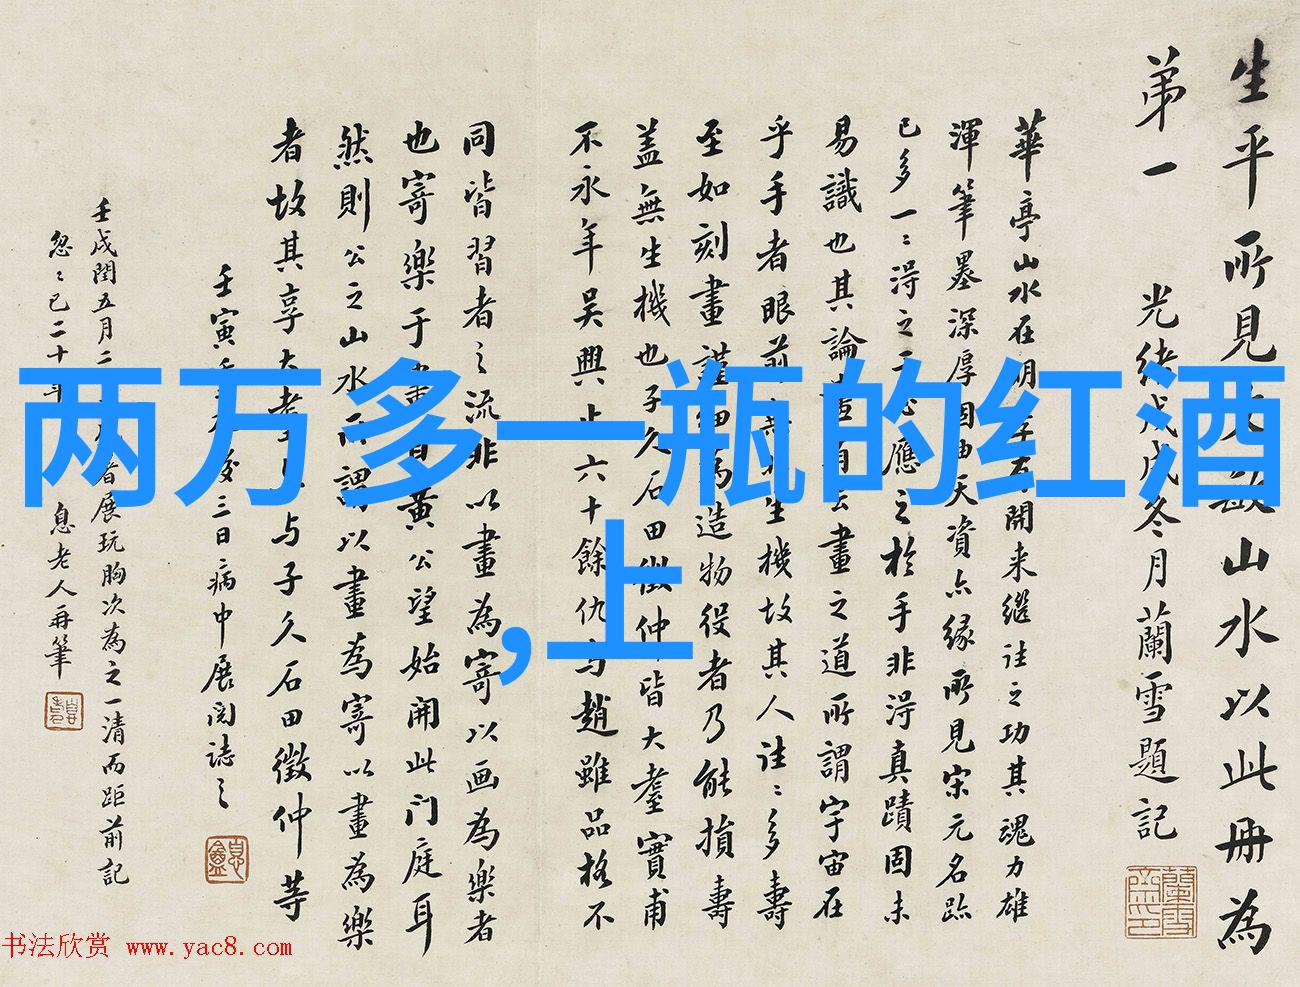 生平所見文敏山水以此冊為
弟一　光緒戊戌冬月蘭雪題記
華亭山水在明季開来繼往之功其魂力雄
渾筆墨深厚固由天資亦緣所見宋元名跡
已多一〻淂之於手非淂真蹟固未
易識也其論畫有云畫之道所謂宇宙在
乎手者眼前無非生機故其人往〻多壽
至如刻畫謹細為造物役者乃能損壽
蓋無生機也子久石田徵仲皆大耋實甫
不永年吳興止六十餘仇与趙雖品格不
同皆習者之流非以畫為寄以画為樂者
也寄樂于畫自黃公望始開此门庭耳
然則公之山水所謂以畫為寄以畫為樂
者故其享大耋与子久石田徵仲等
壬寅三日病中展閱誌之
壬戌閏五月二展玩胸次為之一清而距前記
忽〻已二十年　息老人再筆
两万多一瓶的红酒
,上
书法欣赏 www.yac8.com